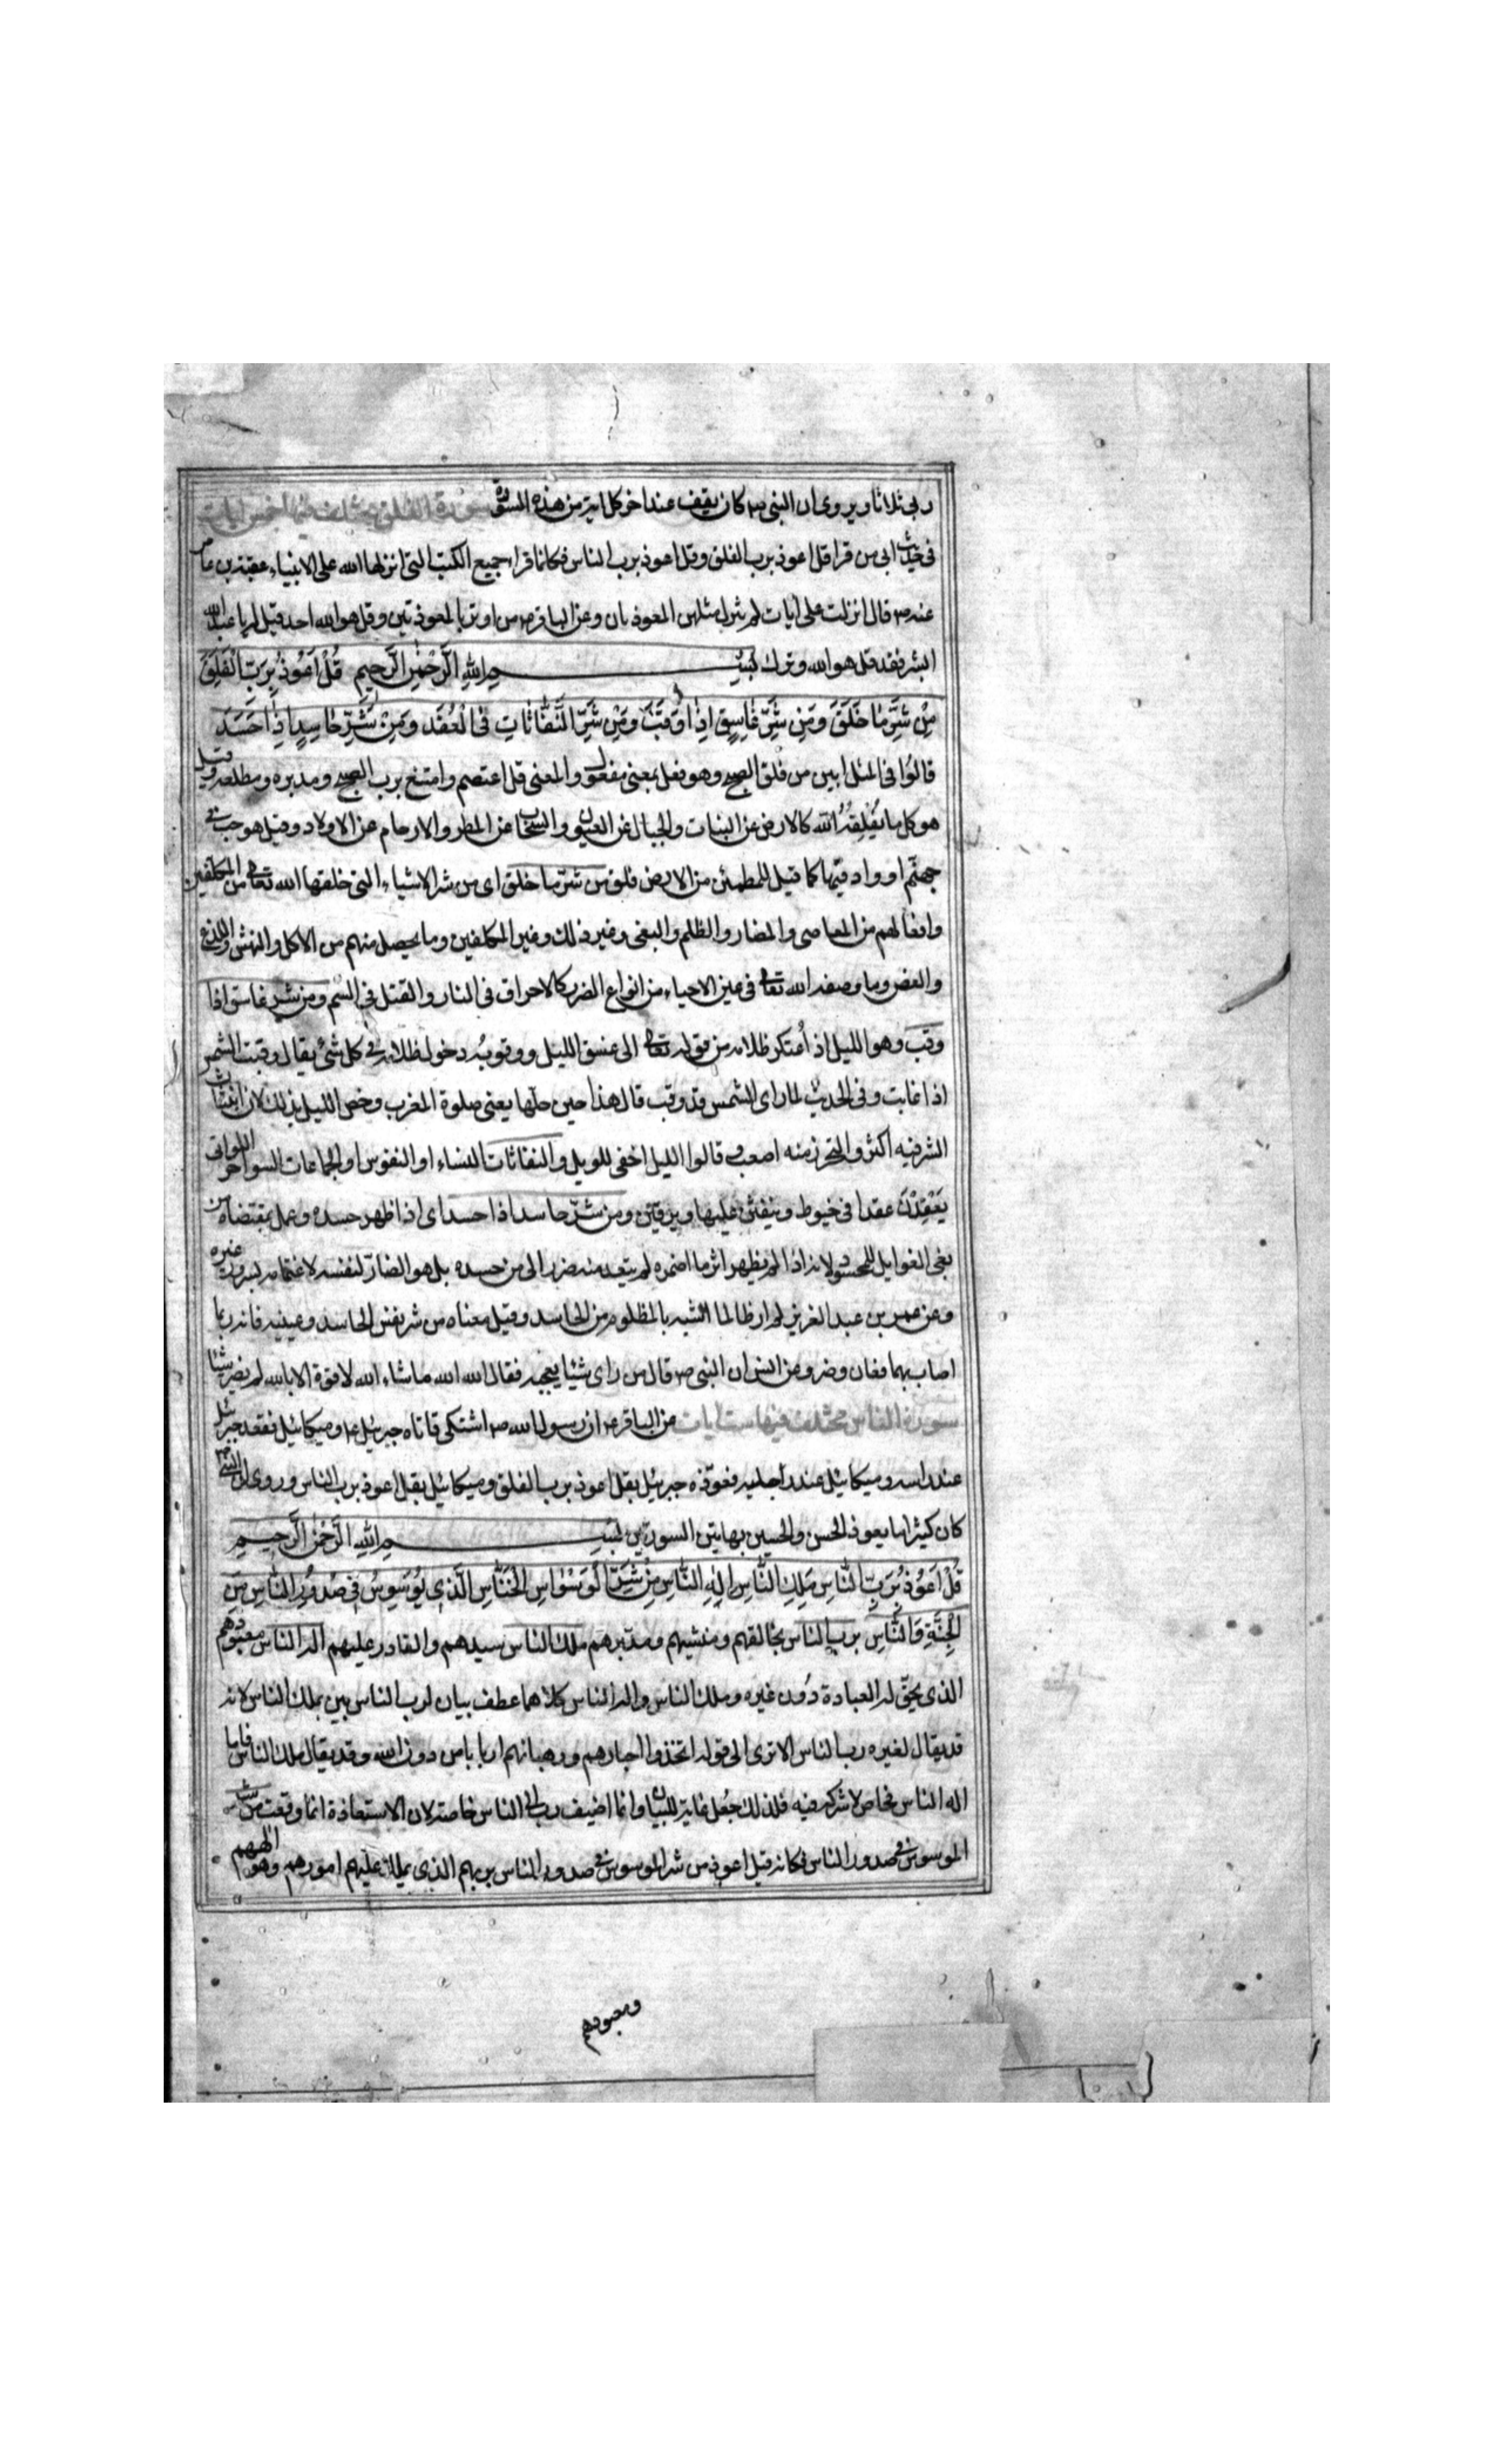 ربي ثلاثا ويروى ان النبي ص كان يقف عند اخر كل اية من هذه السورة سورة الفلق مختلف فيها خمس ايات
في حديث ابي من قرا قل اعوذ برب الفلق وقل اعوذ برب الناس فكانما قراء جميع الكتب التي انزلها الله على الانبياء عقبة بن عامر
عنه ص قال انزلت على ايات لم ينزل مثلهن المعوذتان وعن الباقر ع من اوتر بالمعوذتين وقل هو الله احد قيل له يا عبد الله
ابشر فقد قبل الله وترك بسم الله الرحمن الرحيم قُلْ اَعُوذُ بِرَبِّ الْفَلَقِ
مِنْ شَرِّ مٰا خَلَقَ وَمِنْ شَرِّ غٰاسِقٍ اِذٰا وَقَبَ وَمِنْ شَرِّ النَّفّٰاثٰاتِ فِي الْعُقَدِ وَمِنْ شَرِّ حٰاسِدٍ اِذٰا حَسَدَ
قالوا في المثل ابين من فلق الصبح وهو فعل بمعنى مفعول والمعنى قل اعتصم وامتنع برب الصبح ومدبره ومطلعه وقيل
هو كل ما يفلقه الله كالارض عن النبات والجبال عن العيون والسحاب عن المطر والارحام عن الاولاد وقيل هو جب في
جهنم او واد فيها كما قيل للمطمئن من الارض فلق من شر ما خلق اى من شر الاشياء التي خلقها الله تعالى من المكلفين
وافعالهم من المعاصى والمضار والظلم والبغى وغير ذلك وغير المكلفين وما يحصل منهم من الاكل والنهش واللدغ
والعض وما وضعه الله تعالى في عين الاحياء من انواع الضرر كالاحراق في النار والقتل في السم ومن شر غاسق اذا
وقب وهو الليل اذ اعتكر ظلامه من قوله تعالى الى غسق الليل ووقوبه دخول ظلامه في كل شئ يقال وقبت الشمس
اذا غابت وفي الحديث لما راى الشمس قد وقب قال هذا حين حلها يعنى صلوة المغرب وخص الليل بذلك لان انبثاث
الشر فيه اكثر والتحرز منه اصعب وقالوا الليل اخفى للويل والنفاثات النساء او النفوس او الجماعات السواحر اللواتى
يَعْقِدْنَ عقدا في خيوط وينفثن عليها ويرقين ومن شر حاسد اذا حسد اى اذا ظهر حسده وعمل بمقتضاه من
بغى الغوايل للمحسود لانه اذا لم يظهر اثر ما اضمره لم يتعد منه ضرر الى من حسده بل هو الضار لنفسه لاغتمامه بسرور غيره
وعن عمر بن عبد العزيز لم ار ظالما اشبه بالمظلوم من الحاسد وقيل معناه من شر نفس الحاسد وعينه فانه ربما
اصاب بهما فعان وضر وعن انس ان النبي ص قال من راى شيئا يعجبه فقال الله الله ما شاء الله لا قوة الا بالله لم يضر شيئا
سورة الناس مختلف فيها ست ايات عن الباقر ع ان رسول الله ص اشتكى فاتاه جبرئيل ع وميكائيل فقعد جبرئيل
عند راسه وميكائيل عند رجليه فعوذه جبرئيل بقل اعوذ برب الفلق وميكائيل بقل اعوذ برب الناس وروى ان النبي ص
كان كثيرا ما يعوذ الحسن والحسين بهاتين السورتين بسم الله الرحمن الرحيم
قُلْ اَعُوذُ بِرَبِّ النّٰاسِ مَلِكِ النّٰاسِ اِلٰهِ النّٰاسِ مِنْ شَرِّ الْوَسْوٰاسِ الْخَنّٰاسِ الَّذِي يُوَسْوِسُ فِي صُدُورِ النّٰاسِ مِنَ
الْجِنَّةِ وَالنّٰاسِ برب الناس بخالقهم ومنشيهم ومدبرهم ملك الناس سيدهم والقادر عليهم اله الناس معبودهم
الذى يحق له العبادة دون غيره وملك الناس واله الناس كلاهما عطف بيان لرب الناس بين بملك الناس لانه
قد يقال لغيره رب الناس الا ترى الى قوله اتخذوا احبارهم ورهبانهم اربابا من دون الله وقد يقال ملك الناس فاما
اله الناس فخاص لا شركة فيه فلذلك جُعل غاية للبيان وانما اضيف رب الى الناس خاصة لان الاستعاذة انما وقعت من شر
الموسوس في صدور الناس فكانه قيل اعوذ من شر الموسوس في صدور الناس بربهم الذى يملك عليهم امورهم وهو الههم
ومعبودهم